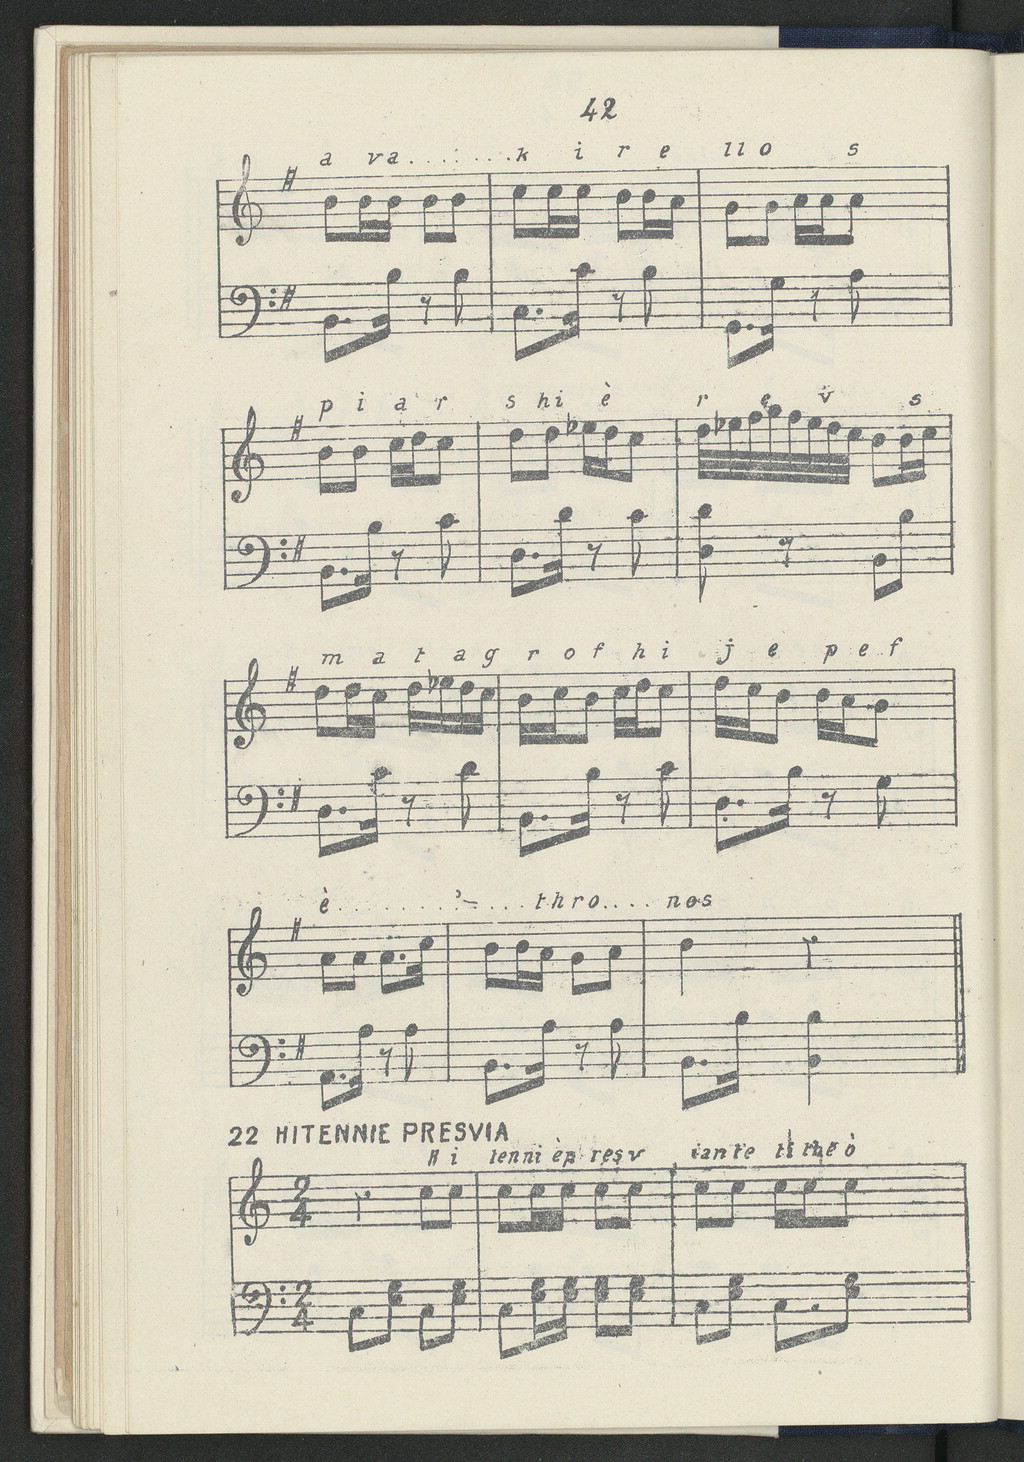 42
a va........k i r e llo s
p i a r s hi è r e v s
m a t a g r o f h i j e p e f
è............thro....nos
22 HITENNIE PRESVIA
H i tenni èp resv iante ti the ò
2 4
2 4